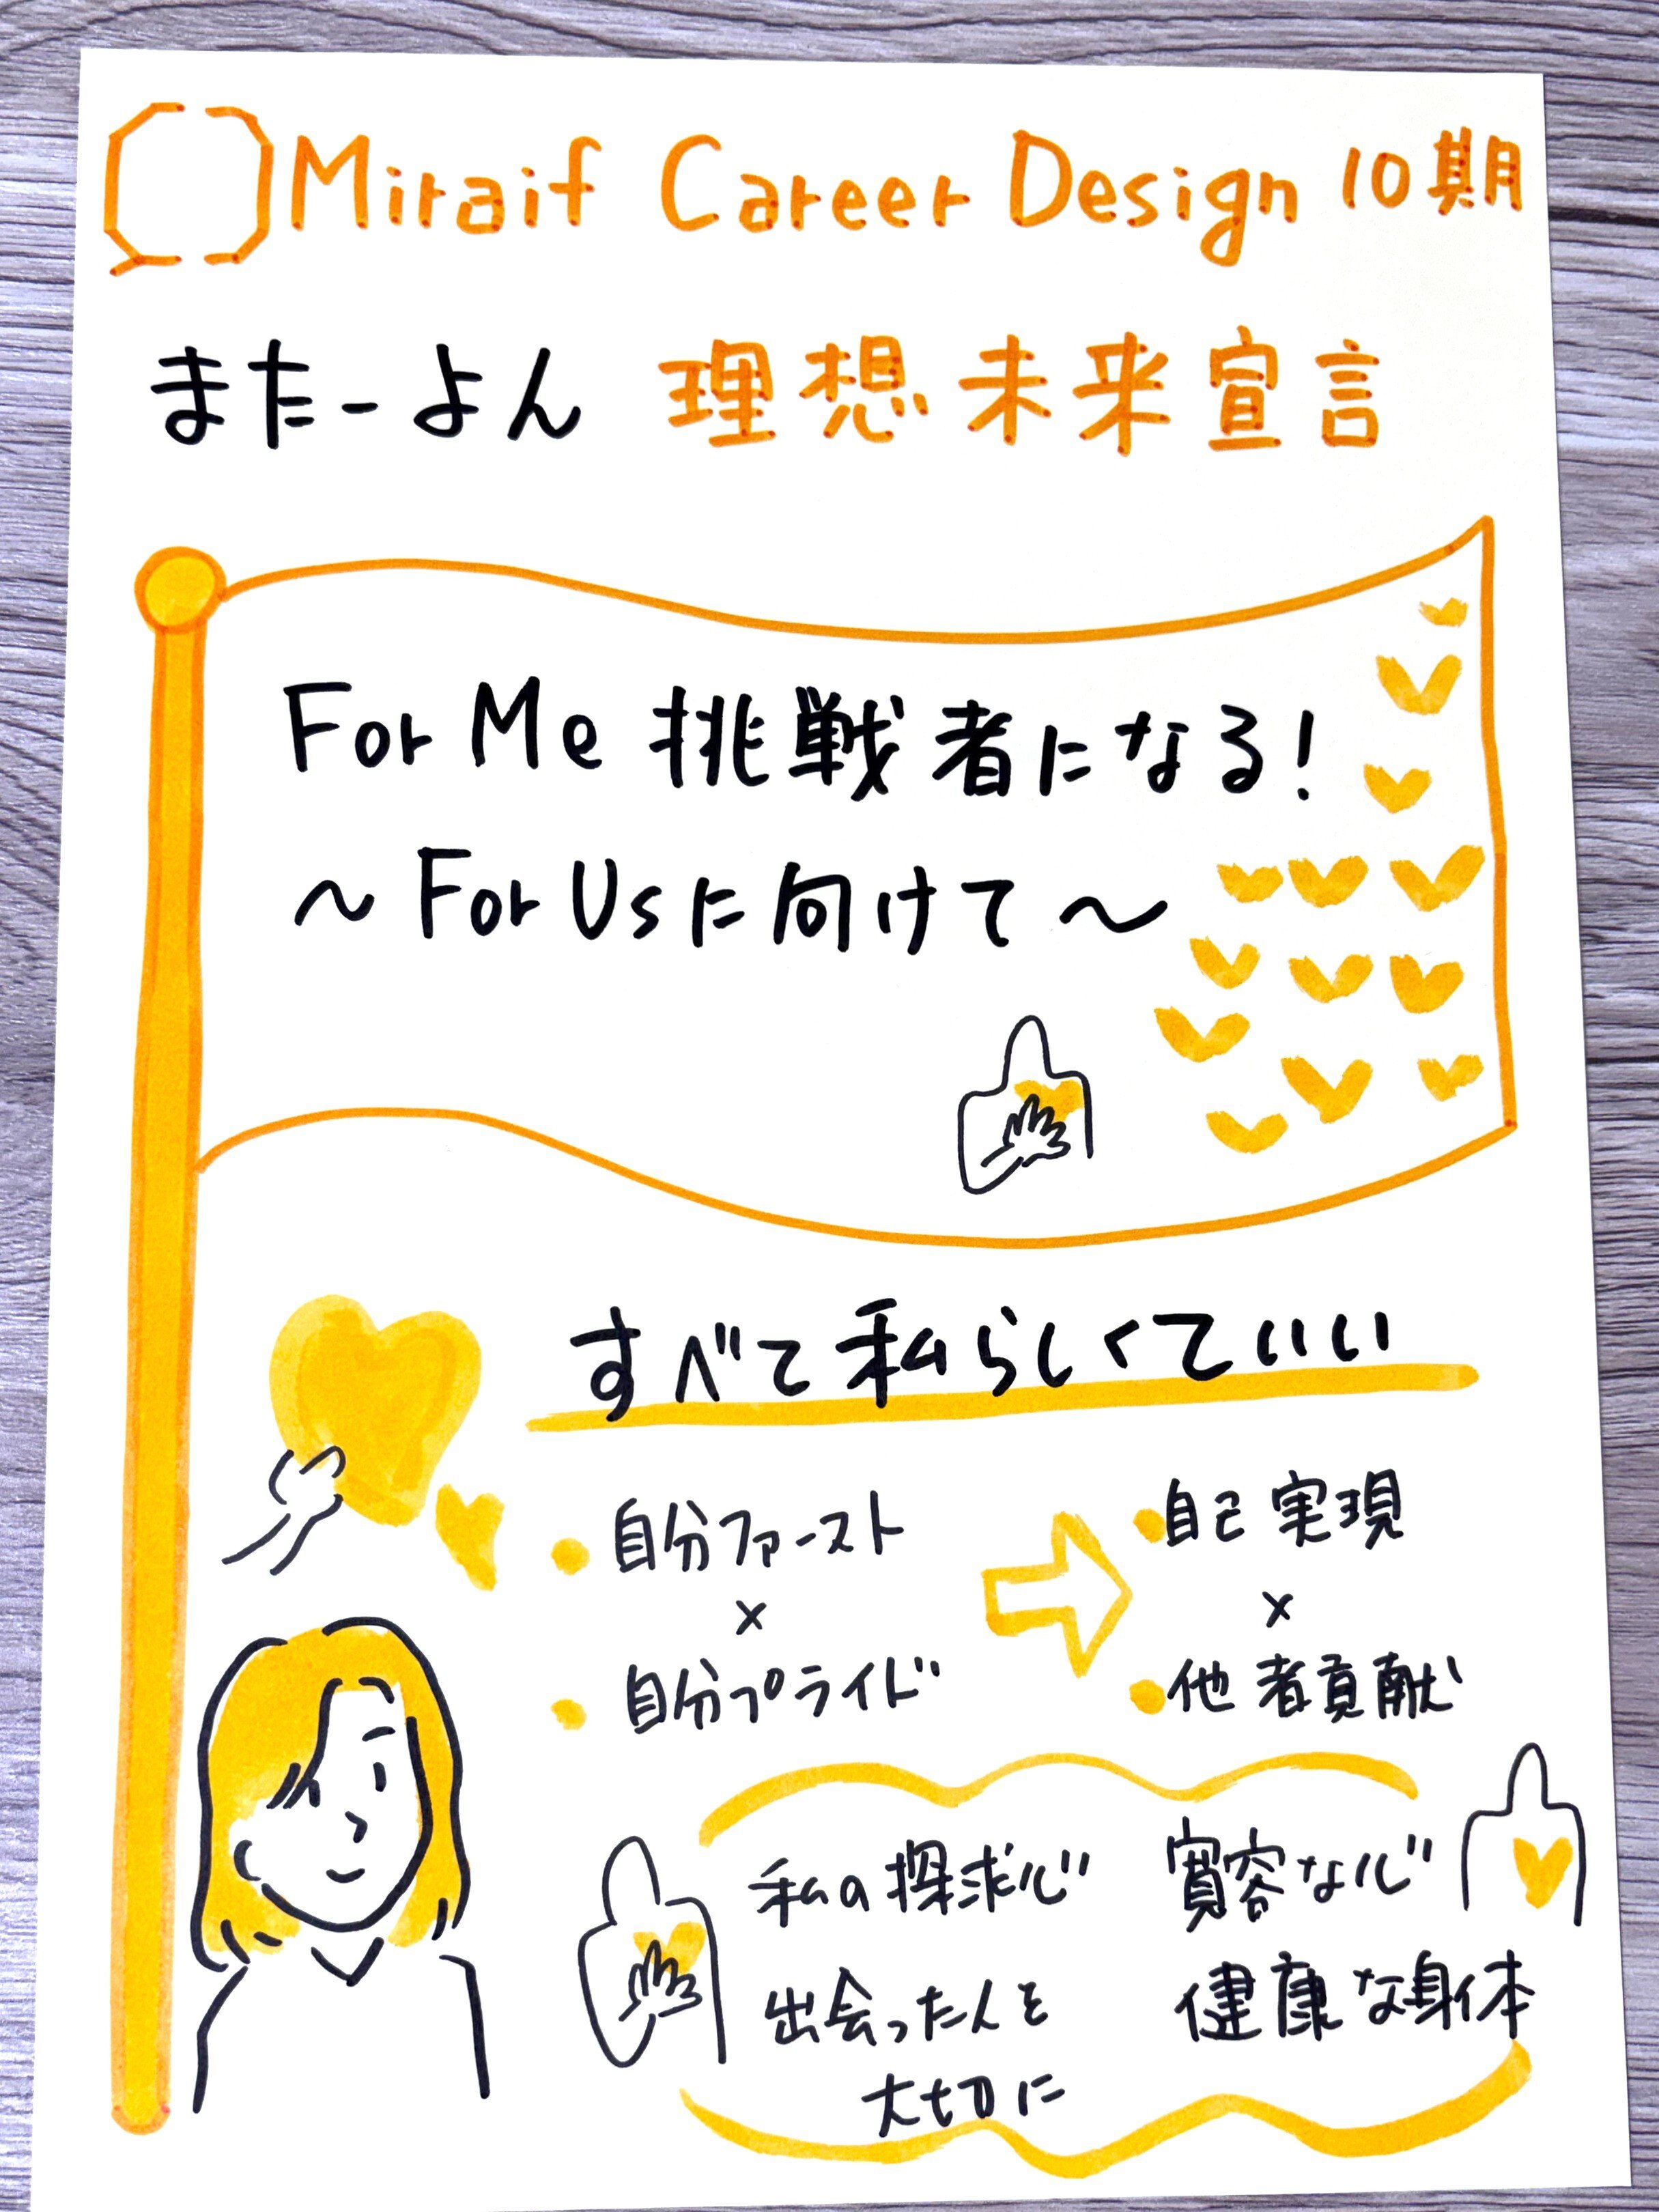 Miraif Career Design 10期
またーよん 理想未来宣言
For Me 挑戦者になる!
～For Usに向けて～
すべて私らしくていい
・自分ファースト
×
・自分プライド
・自己実現
×
・他者貢献
私の探求心
出会った人を
大切に
寛容な心
健康な身体